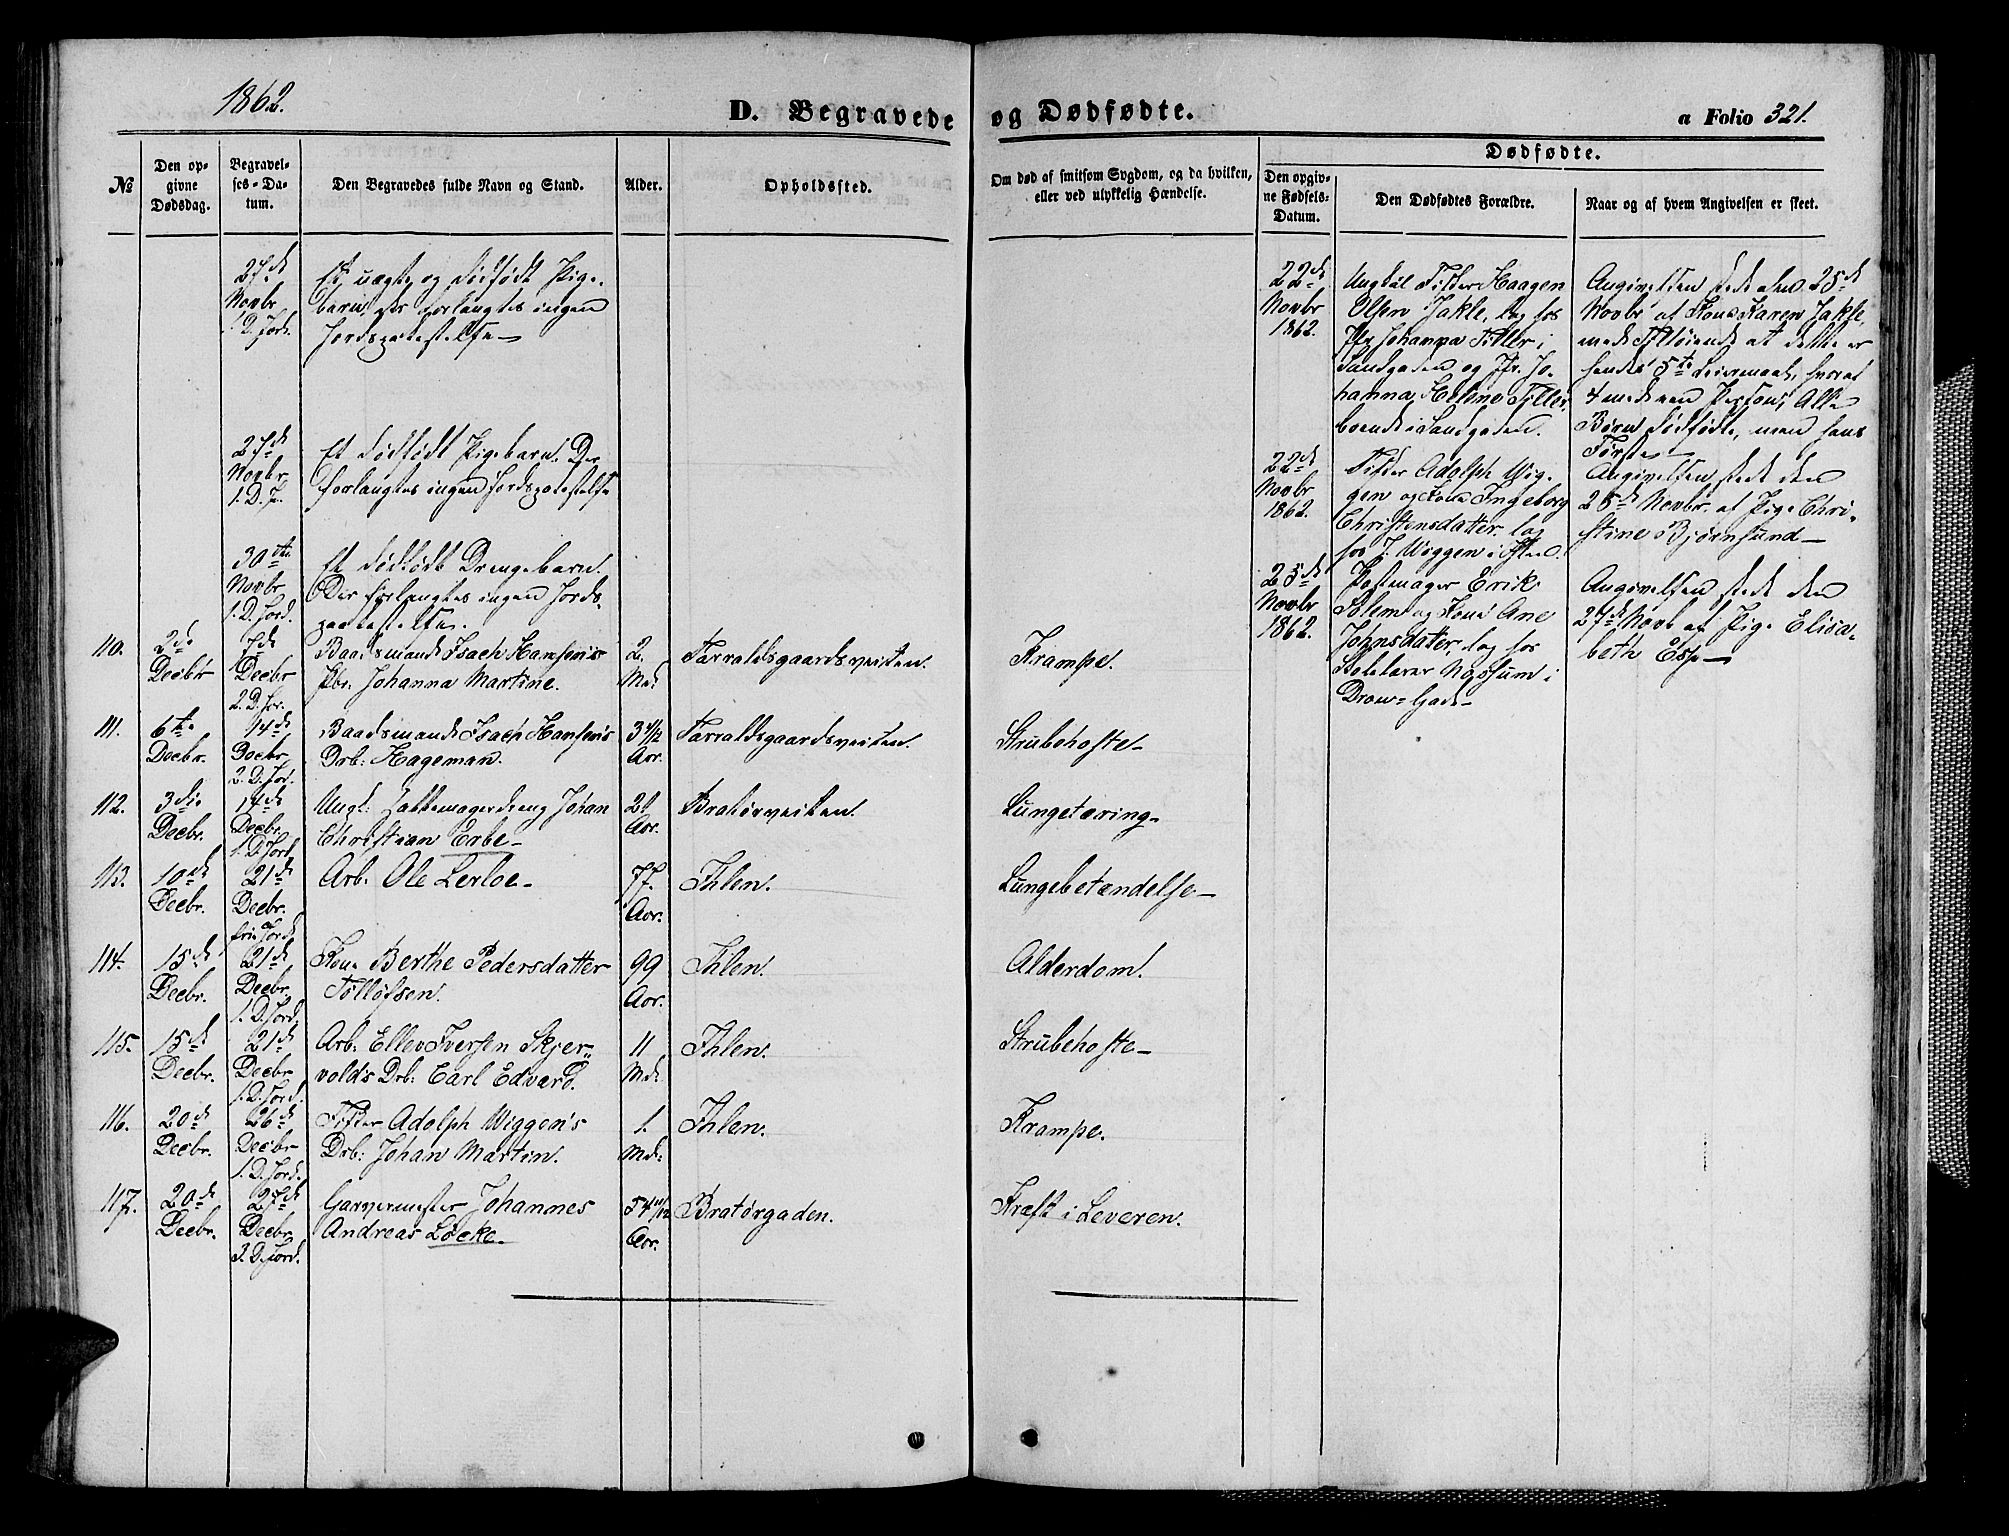 1862.
D. Begravede og Dødfødte.
a Folio 321.
№
Den op-
givne
Dødsdag.
Begravel-
ses-Da-
tum.
Den Begravedes fulde Navn og Stand.
Alder.
Opholdssted.
Om død af smitsom Sygdom, og da hvilken,
eller ved ulykkelig Hændelse.
Dødfødte.
Den opgiv-
ne Fødsels-
Datum.
Den Dødfødtes Forældre.
Naar og af hvem Angivelsen er skeet.
27de
Novbr
1. D. Jord.
Et uægte og dødfødt Pige-
barn. Der forlangtes ingen
Jordspaakastelse
22de
Novbr
1862.
Ungkal Fisker Haagen
Olsen Jakle, log hos
Johanna Tiller i
Sandgaden og Pg. Jo-
hanna Heline Tiller,
boende i Sandgaden.
Angivelsen skede den 25de
Novbr af Kone Karen Jakle,
med Tilføiende at dette er
hendes 5te Leiermaal, hvoraf
4 med een Person, Alle
Børn dødfødte, men hans
Første
27de
Novbr
1. D. J.
Et dødfødt Pigebarn. Der
forlangtes ingen Jordspaakastelse
22de
Novbr
1862.
Fisker Adolph Wig-
gen og Kone Ingeborg
Christensdatter log
hos J. Wiggen i Ihlen.
Angivelsen skede den
25de Novbr. af Pige Chri-
stine Bjørnsund
30te
Novbr
1. D. Jord.
Et dødfødt Drengebarn.
Der forlangtes ingen Jords-
paakastelse.
25de
Novbr
1862.
Erik
Solem og Kone Ane
Johnsdatter, log hos
Nossum i
Gade
Angivelsen skede den
27de Novbr af Pige Elisa-
beth Esp
110.
2de
Decbr
7de
Decbr
2. D. Jor.
Baadsmand Isach Hansens
Pbr. Johanna Martine.
2.
Md.
Tarraldsgaardsveiten.
Krampe.
111.
6te
Decbr.
14de
Decbr
2. D. Jor.
Baadsmand Isach Hansens
Drb: Hageman.
3 4/12
Aar.
Tarraldsgaardsveiten.
Strubehoste
112.
3die
Decbr.
14de
Decbr.
1. D. Jord
Ungk: Hattemagerdreng Johan
Christian Erbe
21
Aar.
Bratørveiten.
Lungetæring
113.
10de
Decbr.
21de
Decbr.
fri Jord
Arb: Ole Lerloe
77.
Aar.
Ihlen.
Lungebetændelse
114.
15de
Decbr.
21de
Decbr.
1. D. Jord.
Kone Berthe Pedersdatter
Tølløfsen.
99
Aar.
Ihlen.
Alderdom.
115.
15de
Decbr.
21de
Decbr
1. D. Jord.
Arb: Ellev Iversen Skjer-
volds Drb: Carl Edvard.
11
Md.
Ihlen.
Strubehoste
116.
20de
Decbr.
26de
Decbr
1. D. Jord.
Fisker Adolph Wiggen's
Drb: Johan Martin.
1.
Md.
Ihlen.
Krampe.
117.
20de
Decbr.
27de
Decbr
3. D. Jord.
Garvermester Johannes
Andreas Løcke
54 11/12
Aar.
Bratørgaden.
Kræft i Leveren.